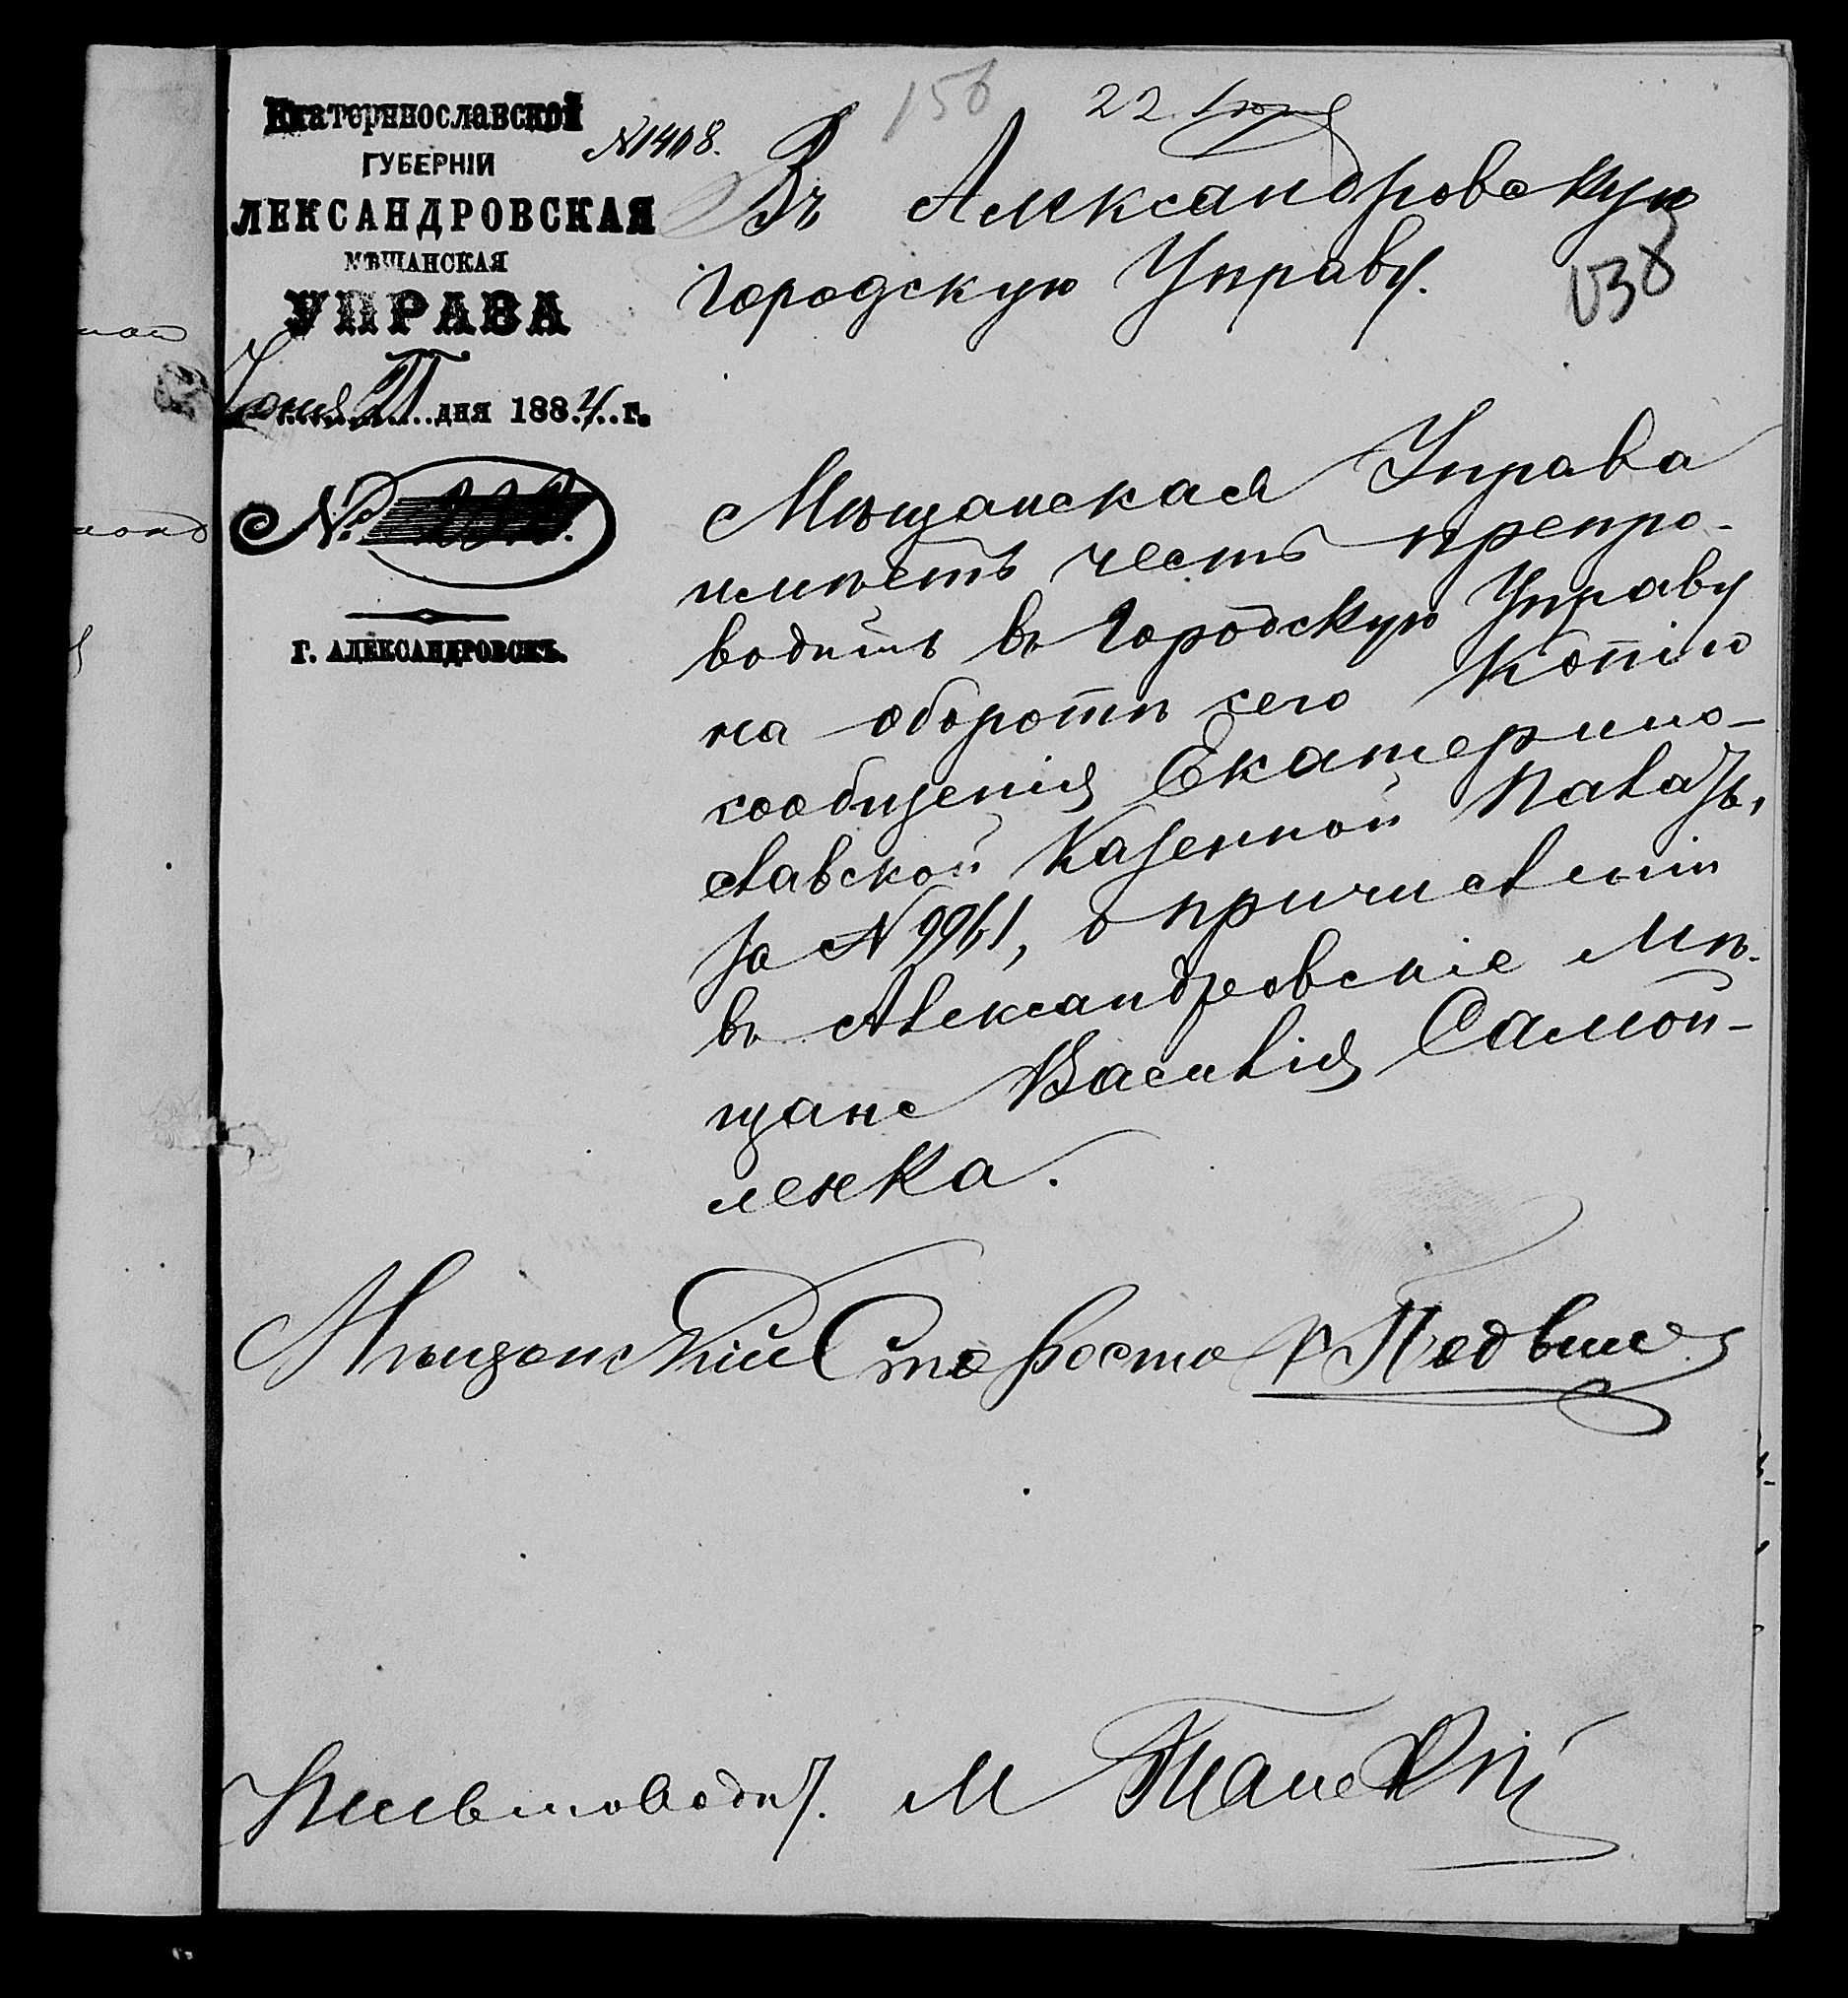 Екатеринославской
ГУБЕРНІИ
ЛЕКСАНДРОВСКАЯ
МѢЩАНСКАЯ
УПРАВА
Іюня 21 дня 1884 г.
№
Г. АЛЕКСАНДРОВСКЪ.
N1408.
156
22 Іюня
Въ Александровскую
Городскую Управу.
138
Мѣщанская Управа
имѣетъ честь препро-
водить въ Городскую Управу
на оборотѣ сего Копію
сообщенія Екатерино-
славской Казенной Палаты,
за N 9961, о причисленіи
въ Александровскіе Мѣ-
щане Василія Самой-
ленка.
Мѣщанскій Староста
Письмоводит. М